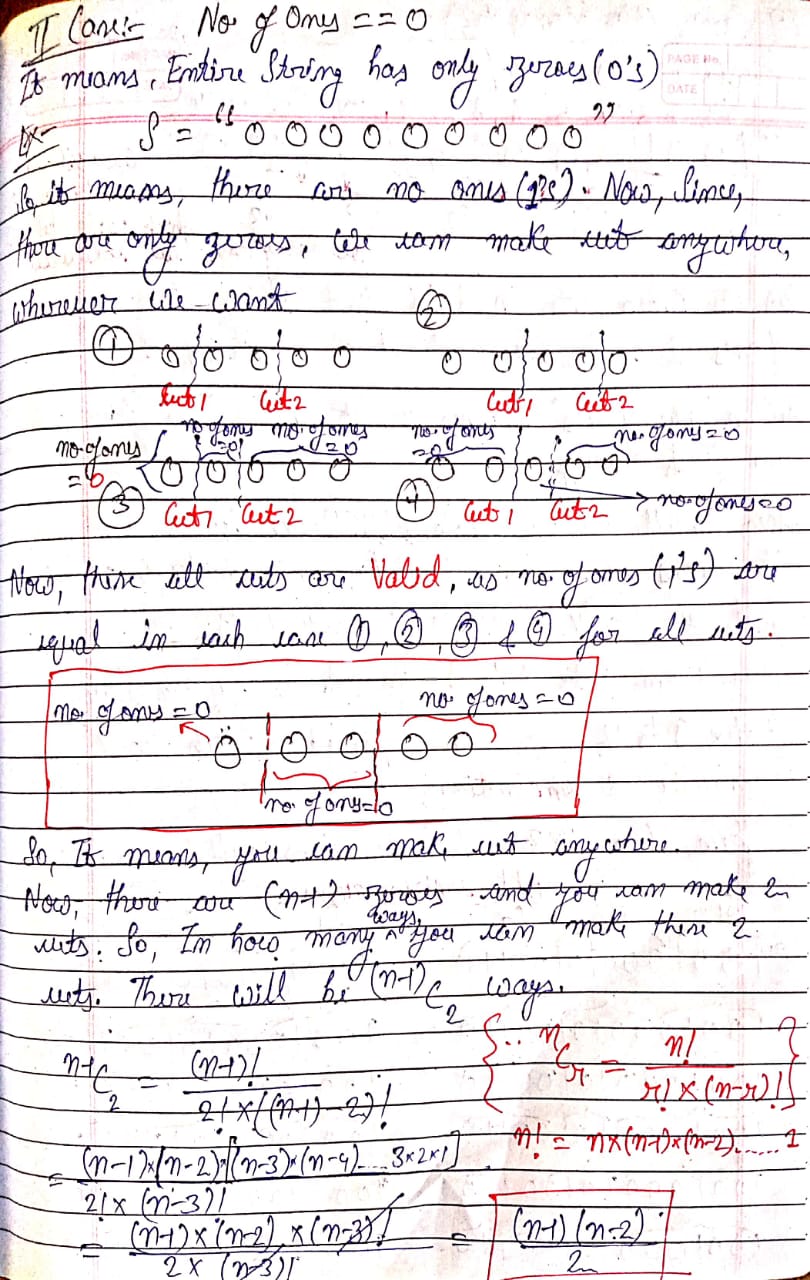 II Case:- No. of Ones == 0
PAGE No.
DATE
It means, Entire String has only zeroes (0's)
Ex- S = "0 0 0 0 0 0 0 0 0"
So, it means, there are no ones (1's). Now, Since,
there are only zeroes, We can make cut anywhere,
wherever We want
① 0 0 0 0 0 ② 0 0 0 0 0
Cut 1 Cut 2 Cut 1 Cut 2
no. of ones = 0 no of ones = 0 no. of ones = 0 no. of ones = 0 no. of ones = 0
0 0 0 0 0 0 0 0 0 0
③ Cut 1 Cut 2 ④ Cut 1 Cut 2 → no. of ones = 0
Now, these all cuts are Valid, as no. of ones (1's) are
equal in each case ①, ②, ③ & ④ for all cuts.
no. of ones = 0 no. of ones = 0
0 0 0 0 0
no. of ones = 0
So, It means, you can make cut anywhere.
Now, there are (n-1) zeroes and you can make 2
cuts. So, In how many ways, you can make these 2
cuts. There will be (n-1)C2 ways.
n-1C2 = (n-1)! / 2! × ((n-1)-2)!
{∵ nCr = n! / r! × (n-r)!}
n! = n×(n-1)×(n-2)......1
= (n-1)×(n-2)×[(n-3)×(n-4)....3×2×1] / 2! × (n-3)!
= (n-1)×(n-2)×(n-3)! / 2 × (n-3)! = (n-1)(n-2) / 2